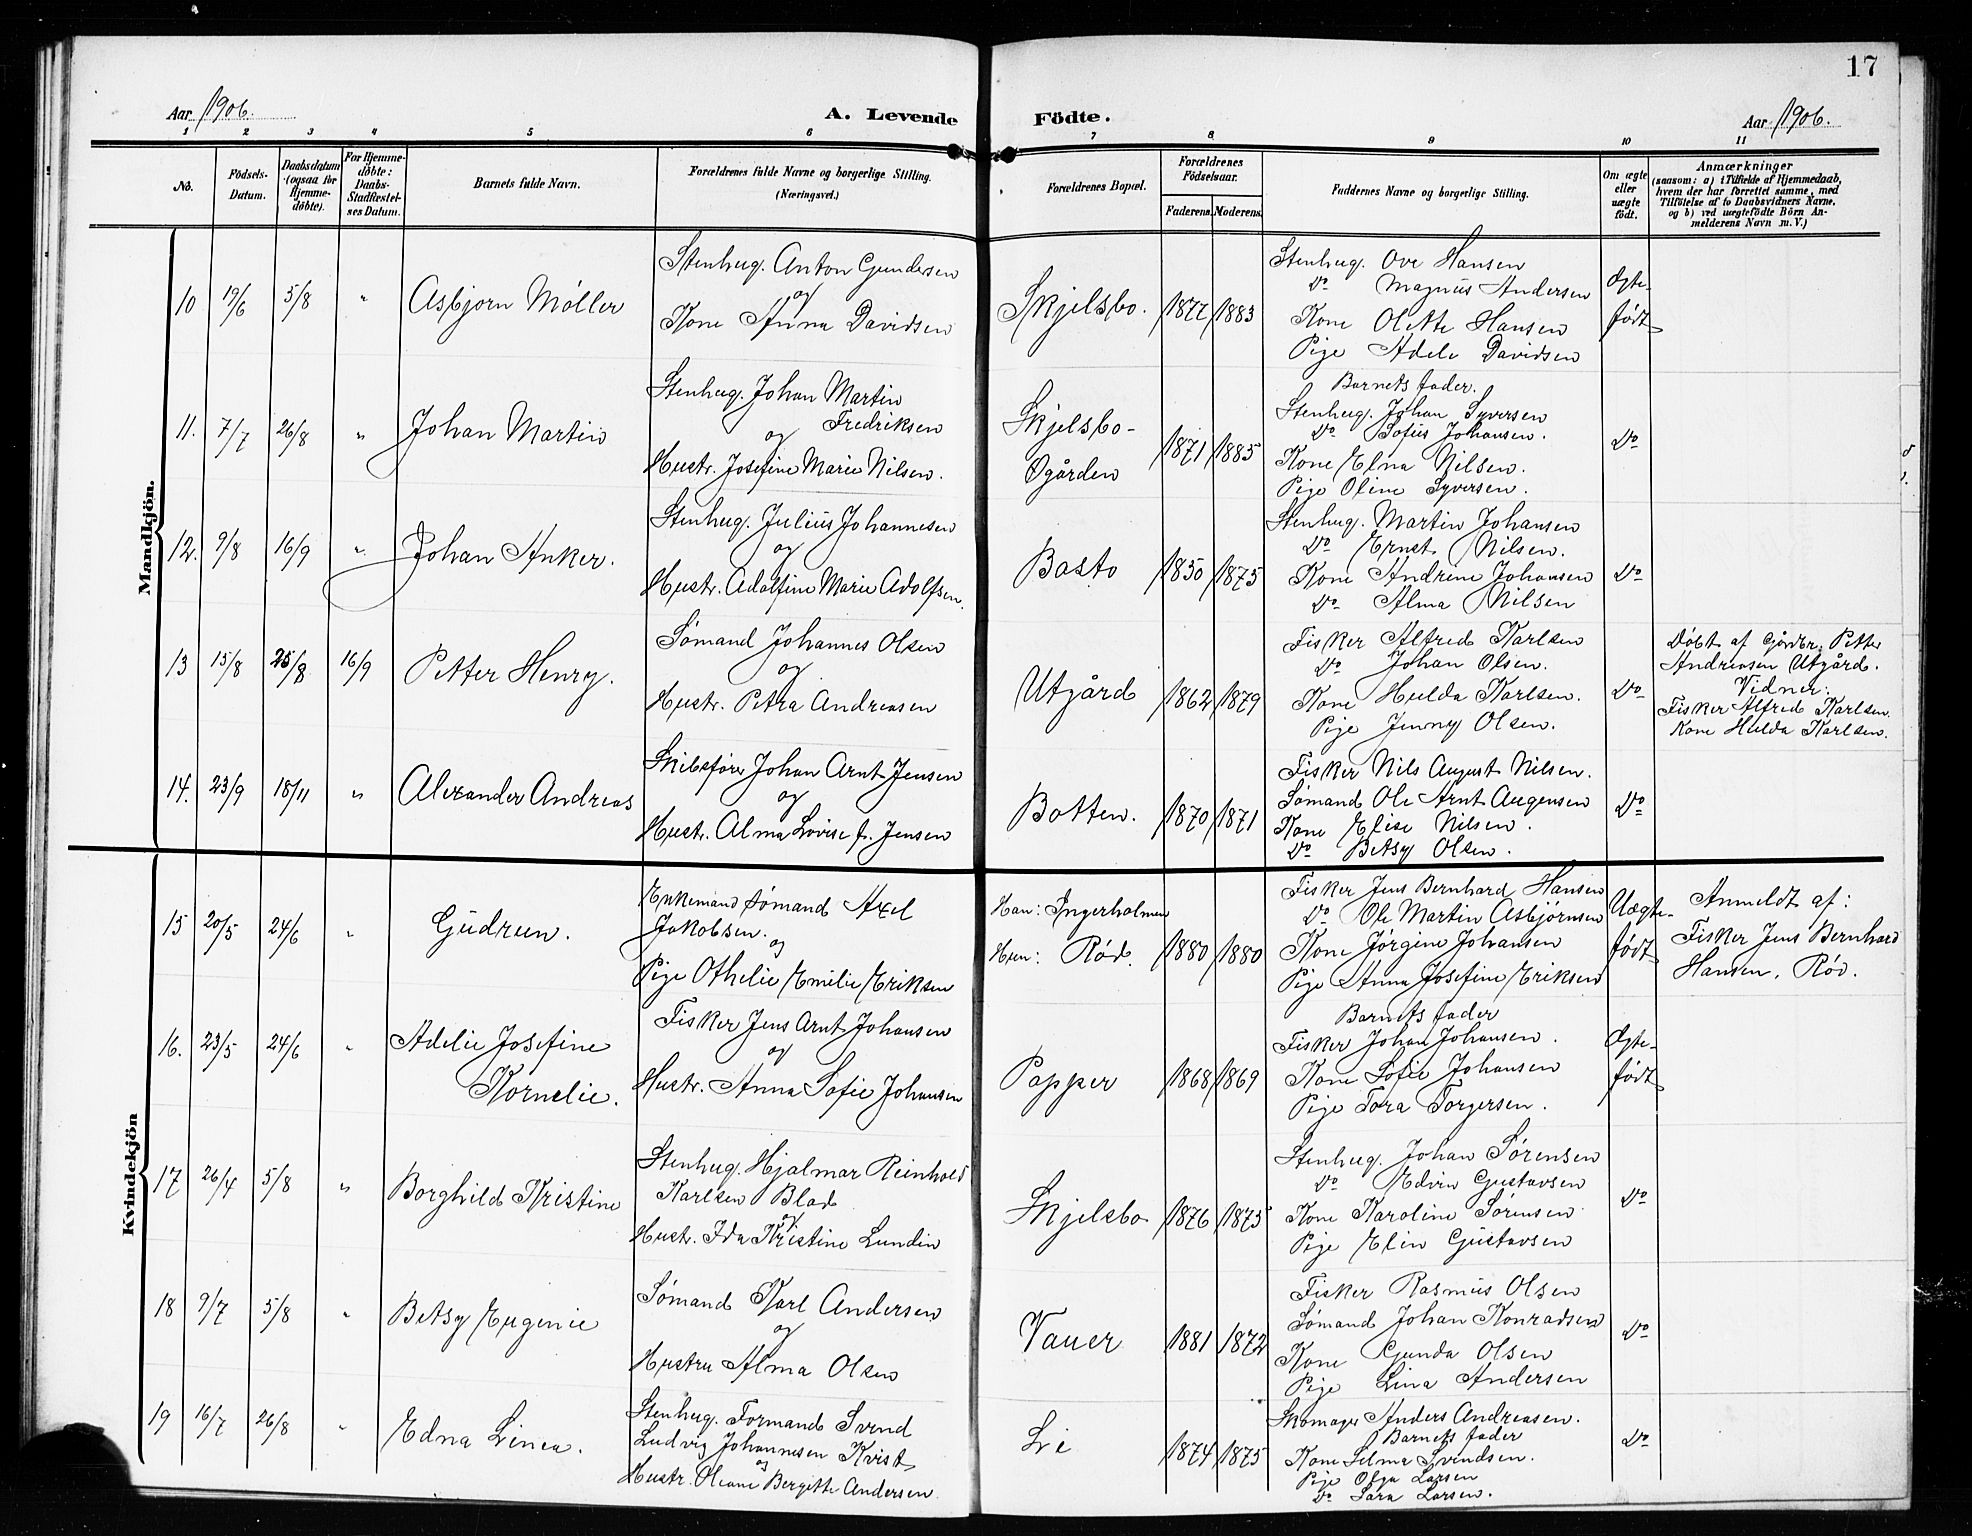 17
Aar 1906.
A. Levende Födte.
Aar 1906.
1 2 3 4 5 6 7 8 9 10 11
No.
Födsels-Datum.
Daabsdatum (ogsaa for Hjemme-döbte).
For Hjemme-döbte: Daabs-Stadfæstel-ses Datum.
Barnets fulde Navn.
Forældrenes fulde Navne og borgerlige Stilling.
(Næringsvei.)
Forældrenes Bopæl.
Forældrenes Födselsaar.
Faderens. Moderens.
Faddernes Navne og borgerlige Stilling.
Om ægte eller uægte födt.
Anmærkninger
(saasom: a) i Tilfælde af Hjemmedaab,
hvem der har forrettet samme, med
Tilföielse af to Daabsvidners Navne,
og b) ved uægtefödte Börn An-
melderens Navn m. V.)
Mandkjön.
10 19/6 5/8 " Asbjørn Møller
Stenhug. Anton Gundersen
og
Kone Anna Davidsen
Skjelsbo. 1877 1883
Stenhug. Ove Hansen
Do Magnus Andersen
Kone Olette Hansen
Pige Adele Davidsen
Ægte-
født
11. 7/7 26/8 " Johan Martin
Stenhug. Johan Martin
Fredriksen
og
Hustr. Josefine Marie Nilsen.
Skjelsbo-
Øgården 1871 1885
Barnets fader.
Stenhug. Johan Syversen
Do Sofus Johansen.
Kone Elna Nilsen.
Pige Oline Syversen.
Do
12. 9/8 16/9 " Johan Anker.
Stenhug. Julius Johannesen
og
Hustr. Adolfine Marie Adolfsen.
Basto 1850 1875
Stenhug. Martin Johansen
Do Ernst Nilsen.
Kone Andrine Johansen
Do Alma Nilsen
Do
13 15/8 25/8 16/9 Petter Henry.
Sømand Johannes Olsen
og
Hustr. Petra Andreasen
Utgård 1862 1879
Fisker Alfred Karlsen
Do Johan Olsen.
Kone Hulda Karlsen.
Pige Jenny Olsen.
Do
Døbt af Gårdbr. Petter
Andreasen Utgård.
Vidner:
Fisker Alfred Karlsen.
Kone Hulda Karlsen.
14. 23/9 18/11 " Alexander Andreas
Skibsfører Johan Arnt Jensen
og
Hustr. Alma Lovise f. Jensen
Botten. 1870 1871
Fisker Nils August Nilsen.
Sømand Ole Arnt Augensen
Kone Elise Nilsen.
Do Betsy Olsen.
Do
Kvindekjön
15 20/5 24/6 " Gudrun.
Enkemand Sømand Axel
Jakobsen.
og
Pige Othelie Emilie Eriksen
Han: Ingerholmen
Hun: Rød. 1880 1880
Fisker Jens Bernhard Hansen
Do Ole Martin Asbjørnsen
Kone Jørgine Johansen
Pige Anna Josefine Eriksen
Uægte-
født
Anmeldt af:
Fisker Jens Bernhard
Hansen, Rød.
16. 23/5 24/6 " Adelie Josefine
Kornelie.
Fisker Jens Arnt Johansen
og
Hustr. Anna Sofie Johansen
Papper 1868 1869
Barnets fader
Fisker Johan Johansen.
Kone Sofie Johansen
Pige Tora Torgersen.
Ægte-
født
17 26/4 5/8 " Borghild Kristine
Stenhug. Hjalmar Reinhold
Karlsen Blad
og
Hustr. Ida Kristine Lundin
Skjelsbo 1876 1875
Stenhug. Johan Sørensen
Do Edvin Gustavsen
Kone Karoline Sørensen
Pige Elin Gustavsen
Do
18 9/7 5/8 " Betsy Eugenie
Sømand Karl Andersen
og
Hustru Alma Olsen
Vauer 1881 1872
Fisker Rasmus Olsen
Sømand Johan Konradsen
Kone Gunda Olsen
Pige Lina Andersen
Do
19 16/7 26/8 " Edna Linea.
Stenhug. Formand Svend
Ludvig Johannesen Kvist
og
Hustr. Oleane Bergitte Andersen
Li 1874 1875
Skomager Anders Andreasen.
Barnets fader
Kone Selma Svendsen.
Pige Olga Larsen
Do Sara Larsen.
Do